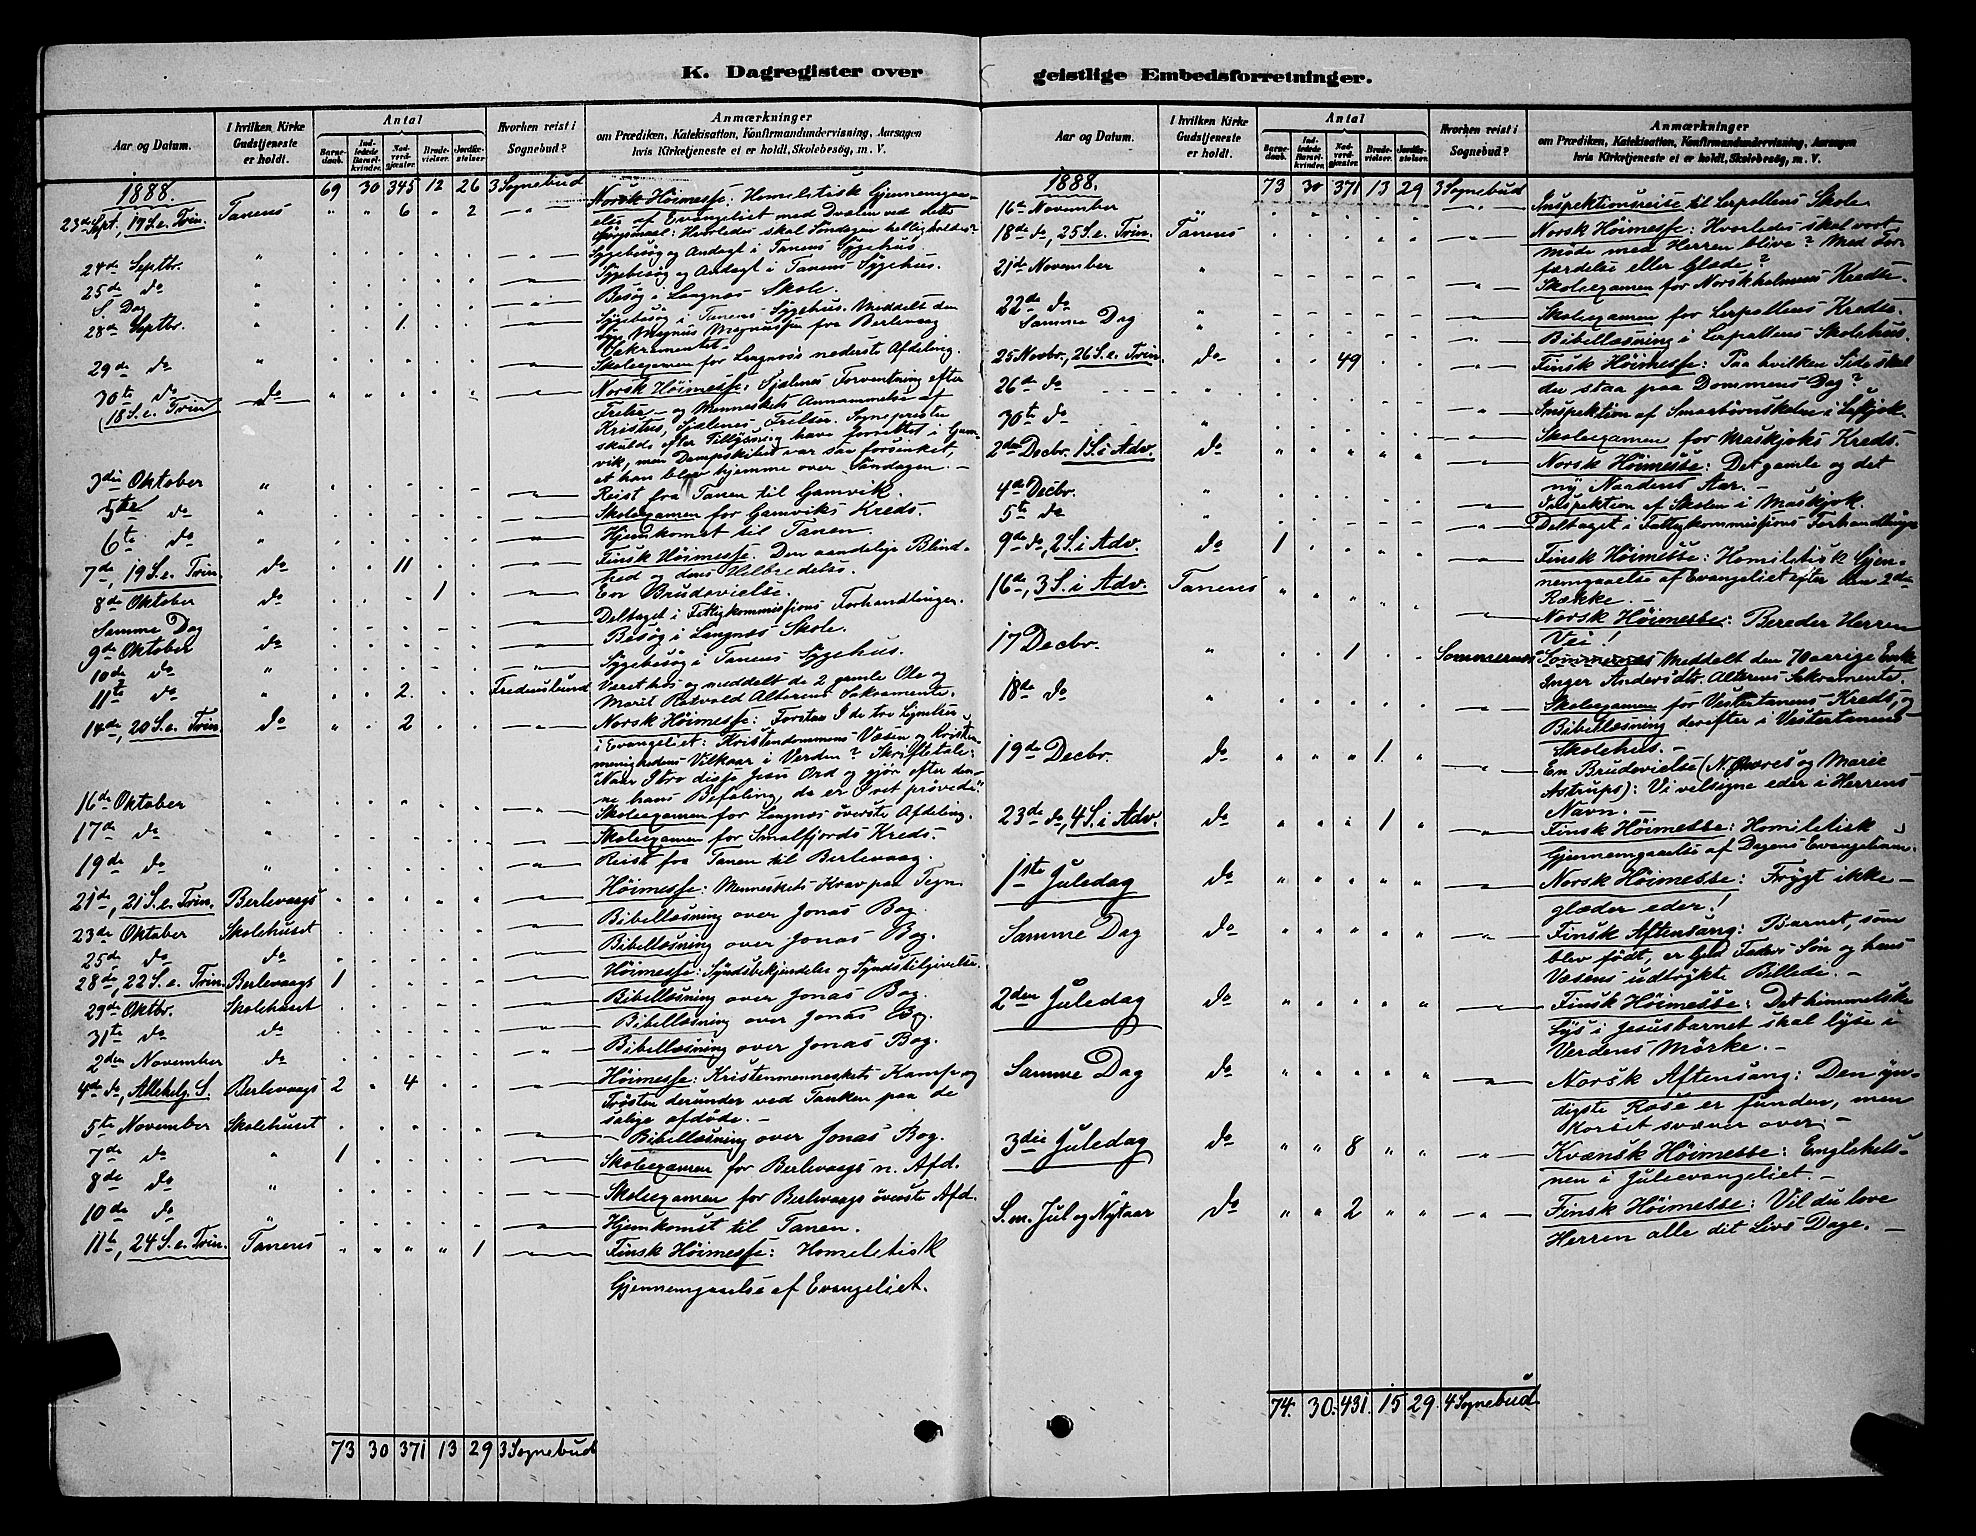 K. Dagregister over geistlige Embedsforretninger.
Aar og Datum.
I hvilken Kirke Gudstjeneste er holdt.
Antal
Barnedaab.
Indledede Barselkvinder.
Nadverdgjæster.
Brudevielser.
Jordfæstelser.
Hvorhen reist i Sognebud?
Anmærkninger
om Prædiken, Katekisation, Konfirmandundervisning, Aarsagen
hvis Kirketjeneste ei er holdt, Skolebesøg, m. V.
1888. 69 30 345 12 26 3 Sognebud
23de Sept., 17 S. e. Trin. Tanens " " 6 " 2 Norsk Höimesse: Homiletisk Gjennemgaa-
else af Evangeliet med Dvælen ved dette
Spörgsmaal: Hvorledes skal Söndagen helligholdes?
24de Septbr. Sygebesög og Andagt i Tanens Sygehus.
25de do Sygebesög og Andagt i Tanens Sygehus.
S. Dag Besög i Langnæs Skole.
28de Septbr. 1. Sygebesög i Tanens Sygehus. Meddelt den
syge Magnus Magnussen fra Berlevaag
Sakramentet.
29de do Skoleexamen for Langnæs nederste Afdeling.
30te do (18 S. e. Trin do Norsk Höimesse: Sjælenes Forventning efter
Frelse og Menneskets Annammelse af
Kristus, Sjælenes Frelser. Sognepresten
skulde efter Tillysning have forrettet i Gam-
vik, men Dampskibet var saa forsinket,
at han blev hjemme over Söndagen.
3die Oktober Reist fra Tanen til Gamvik.
5te do Skoleexamen for Gamviks Kreds.
6te do Hjemkomst til Tanen.
7de, 19 S. e. Trin. do 11 Finsk Höimesse. Den aandelige Blind-
hed og dens Helbredelse.
8de Oktober do 1 En Brudevielse.
Samme Dag Deltaget i Fattigkommissions Forhandlinger.
9de Oktober Besög i Langnæs Skole.
10de do Sygebesög i Tanens Sygehus.
11te do 2. Fredenslund Været hos og meddelt de 2 gamle Ole og
Marit Ratvold Alterens Sakramente.
14de, 20 S. e. Trin. do 2 Norsk Höimesse: Forstaa I de tre Lignelser
i Evangeliet: Kristendommens Væsen og Kristen-
menighedens Vilkaar i Verden? Skriftetale:
"Naar I tro disse Jesu Ord og gjör efter den-
ne hans Befaling, da er I vel prövede."
16de Oktober Skoleexamen for Langnæs överste Afdeling.
17de do Skoleexamen for Smalfjords Kreds.
19de do Reist fra Tanen til Berlevaag.
21de, 21 S. e. Trin. Berlevaags Höimesse: Menneskets Krav paa Tegn
23de Oktober Skolehuset Bibellæsning over Jonas Bog.
25de do do Bibellæsning over Jonas Bog.
28de, 22 S. e. Trin. Berlevaags 1 Höimesse: Syndsbekjendelse og Syndstilgivelse.
29de Oktbr. Skolehuset Bibellæsning over Jonas Bog.
31te do do Bibellæsning over Jonas Bog.
2den November do Bibellæsning over Jonas Bog.
4de do, Allehelg. S. Berlevaags 2 4 Höimesse: Kristenmenneskets Kamp og
Trösten derunder ved Tanken paa de
salige afdöde.
5te November Skolehuset Bibellæsning over Jonas Bog.
7de do " 1 Skoleexamen for Berlevaags n. Afd.
8de do " Skoleexamen for Berlevaags överste Afd.
10de do " Hjemkomst til Tanen.
11te, 24 S. e. Trin. Tanens " " " " 1 Finsk Höimesse: Homiletisk
Gjennemgaaelse af Evangeliet.
73 30 371 13 29 3 Sognebud
Aar og Datum.
I hvilken Kirke Gudstjeneste er holdt.
Antal
Barnedaab.
Indledede Barselkvinder.
Nadverdgjæster.
Brudevielser.
Jordfæstelser.
Hvorhen reist i Sognebud?
Anmærkninger
om Prædiken, Katekisation, Konfirmandundervisning, Aarsagen
hvis Kirketjeneste ei er holdt, Skolebesøg, m. V.
1888. 73 30 371 13 29 3 Sognebud
16de November Inspektionsreise til Lerpollens Skole
18de do, 25 S. e. Trin. Tanens Norsk Höimesse: Hvorledes skal vort
möde med Herren blive? Med For-
færdelse eller Glæde?
21de November " Skoleexamen for Norskholmens Kreds.
22de do Skoleexamen for Lerpollens Kreds.
Samme Dag " Bibellæsning i Lerpollens Skolehus.
25 Novbr., 26 S. e. Trin. do 49 Finsk Höimesse: Paa hvilken Side skal
du staa paa Dommens Dag?
26de do Inspektion af Smaabörnskolen i
30te do Skoleexamen for Maskjoks Kreds.
2den Decbr. 1 S. i Adv. do Norsk Höimesse: Det gamle og det
ny Naadens Aar.
4de Decbr. Inspektion af Skolen i Maskjok.
5te do Deltaget i Fattigkommissions Forhandlinger
9de do, 2 S. i Adv. do 1 Finsk Höimesse: Homiletisk Gjen-
nemgaaelse af Evangeliet efter den 2den
Række.
16de, 3 S. i Adv. Tanens Norsk Höimesse: Bereder Herren
Vei!
17 Decbr. 1 Sommernæs Meddelt den 70 aarige Enke
Inger Andersdtr. Alterens Sakramente.
18de do Skoleexamen for Vestertanens Kreds, og
Bibellæsning derefter i Vestertanens
Skolehus.
19de Decbr. do 1. En Brudevielse (N. og Marie
Astrups): Vi velsigne eder i Herrens
Navn.
23de do, 4 S. i Adv. do 1 Finsk Höimesse: Homiletisk
Gjennemgaaelse af Dagens Evangelium.
1ste Juledag do Norsk Höimesse: Frygt ikke –
glæder eder!
Samme Dag do Finsk Aftensang: Barnet, som
blev födt, er Gud Faders Sön og hans
Væsens udtrykte Billede.
2den Juledag do Finsk Höimesse: Det himmelske
Lys i Jesusbarnet skal lyse i
Verdens Mörke.
Samme Dag do Norsk Aftensang: Den yn-
digste Rose er funden, men
Korset svæver over.
3die Juledag do " " 8 " " Kvænsk Höimesse: Englehils-
nen i Juleevangeliet.
S. m. Jul og Nytaar do " " 2 " " Finsk Höimesse: Vil du love
Herren alle dit Livs Dage.
74. 30. 431. 15 29. 4 Sognebud